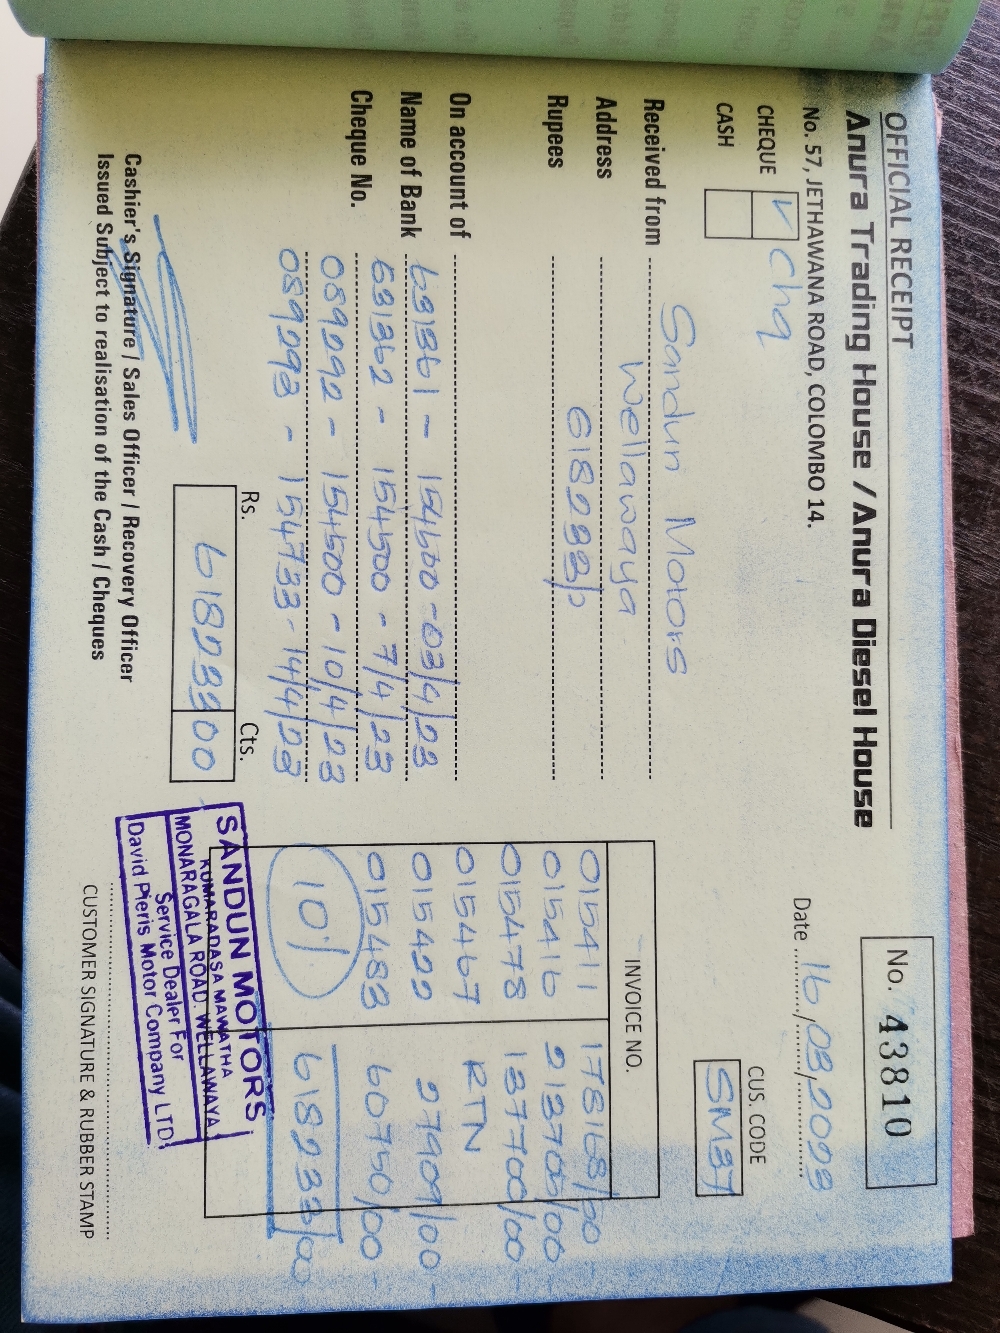 OFFICIAL RECEIPT
Anura Trading House / Anura Diesel House
No. 57, JETHAWANA ROAD, COLOMBO 14.
No. 43810
Date 16/03/2023
CHEQUE ✓ chq
CASH
CUS. CODE
SM37
Received from Sandun Motors
Address Wellawaya
Rupees 618233/=
On account of
Name of Bank 631361 - 154500 - 03/4/23
Cheque No. 631362 - 154500 - 7/4/23
089292 - 154500 - 10/4/23
089293 - 154733 - 14/4/23
INVOICE NO.
015411 178168/00
015416 213705/00
015478 137700/00
015467 RTN
015422 27909/00
015483 60750/00
10% 618233/00
Rs. Cts.
618233 00
Cashier's Signature / Sales Officer / Recovery Officer
Issued Subject to realisation of the Cash / Cheques
SANDUN MOTORS
KUMARADASA MAWATHA
MONARAGALA ROAD WELLAWAYA
Service Dealer For
David Pieris Motor Company LTD.
CUSTOMER SIGNATURE & RUBBER STAMP